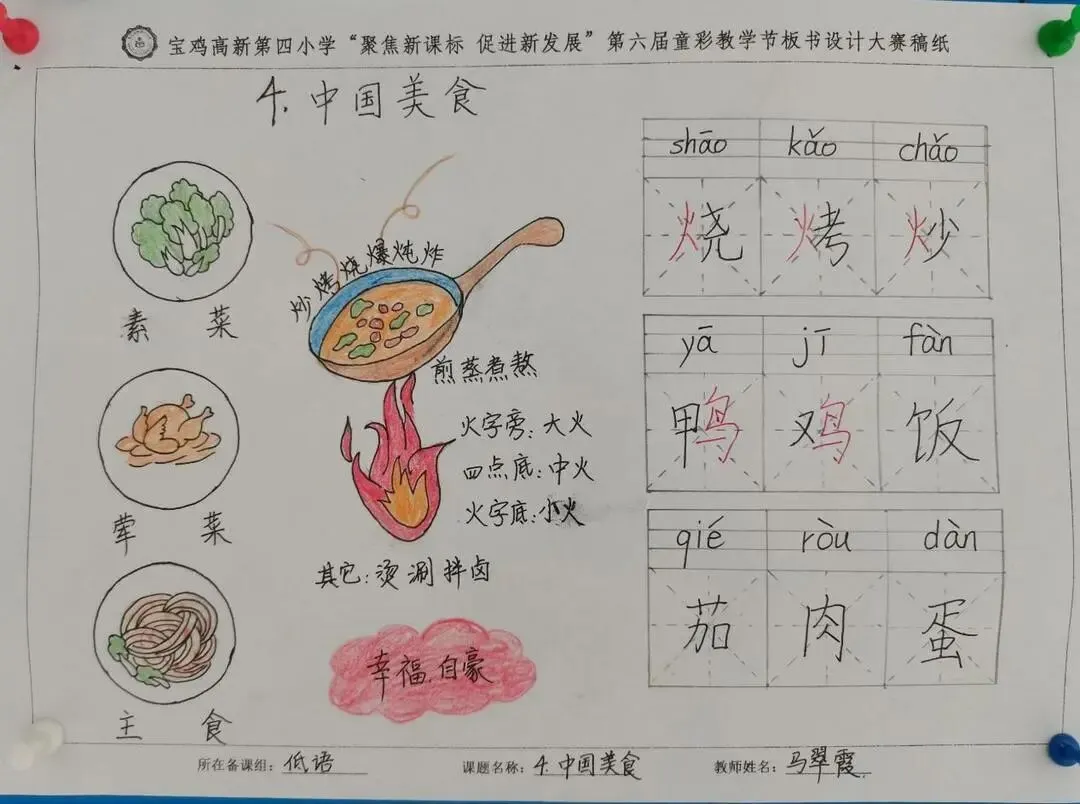 宝鸡高新第四小学“聚焦新课标 促进新发展”第六届童彩教学节板书设计大赛稿纸
4. 中国美食
素 菜
荤 菜
主 食
炒 烤 烧 爆 炖 炸
煎 蒸 煮 熬
火字旁: 大火
四点底: 中火
火字底: 小火
其它: 烫 涮 拌 卤
幸福 自豪
shāo kǎo chǎo
烧 烤 炒
yā jī fàn
鸭 鸡 饭
qié ròu dàn
茄 肉 蛋
所在备课组: 低语 课题名称: 4. 中国美食 教师姓名: 马翠霞